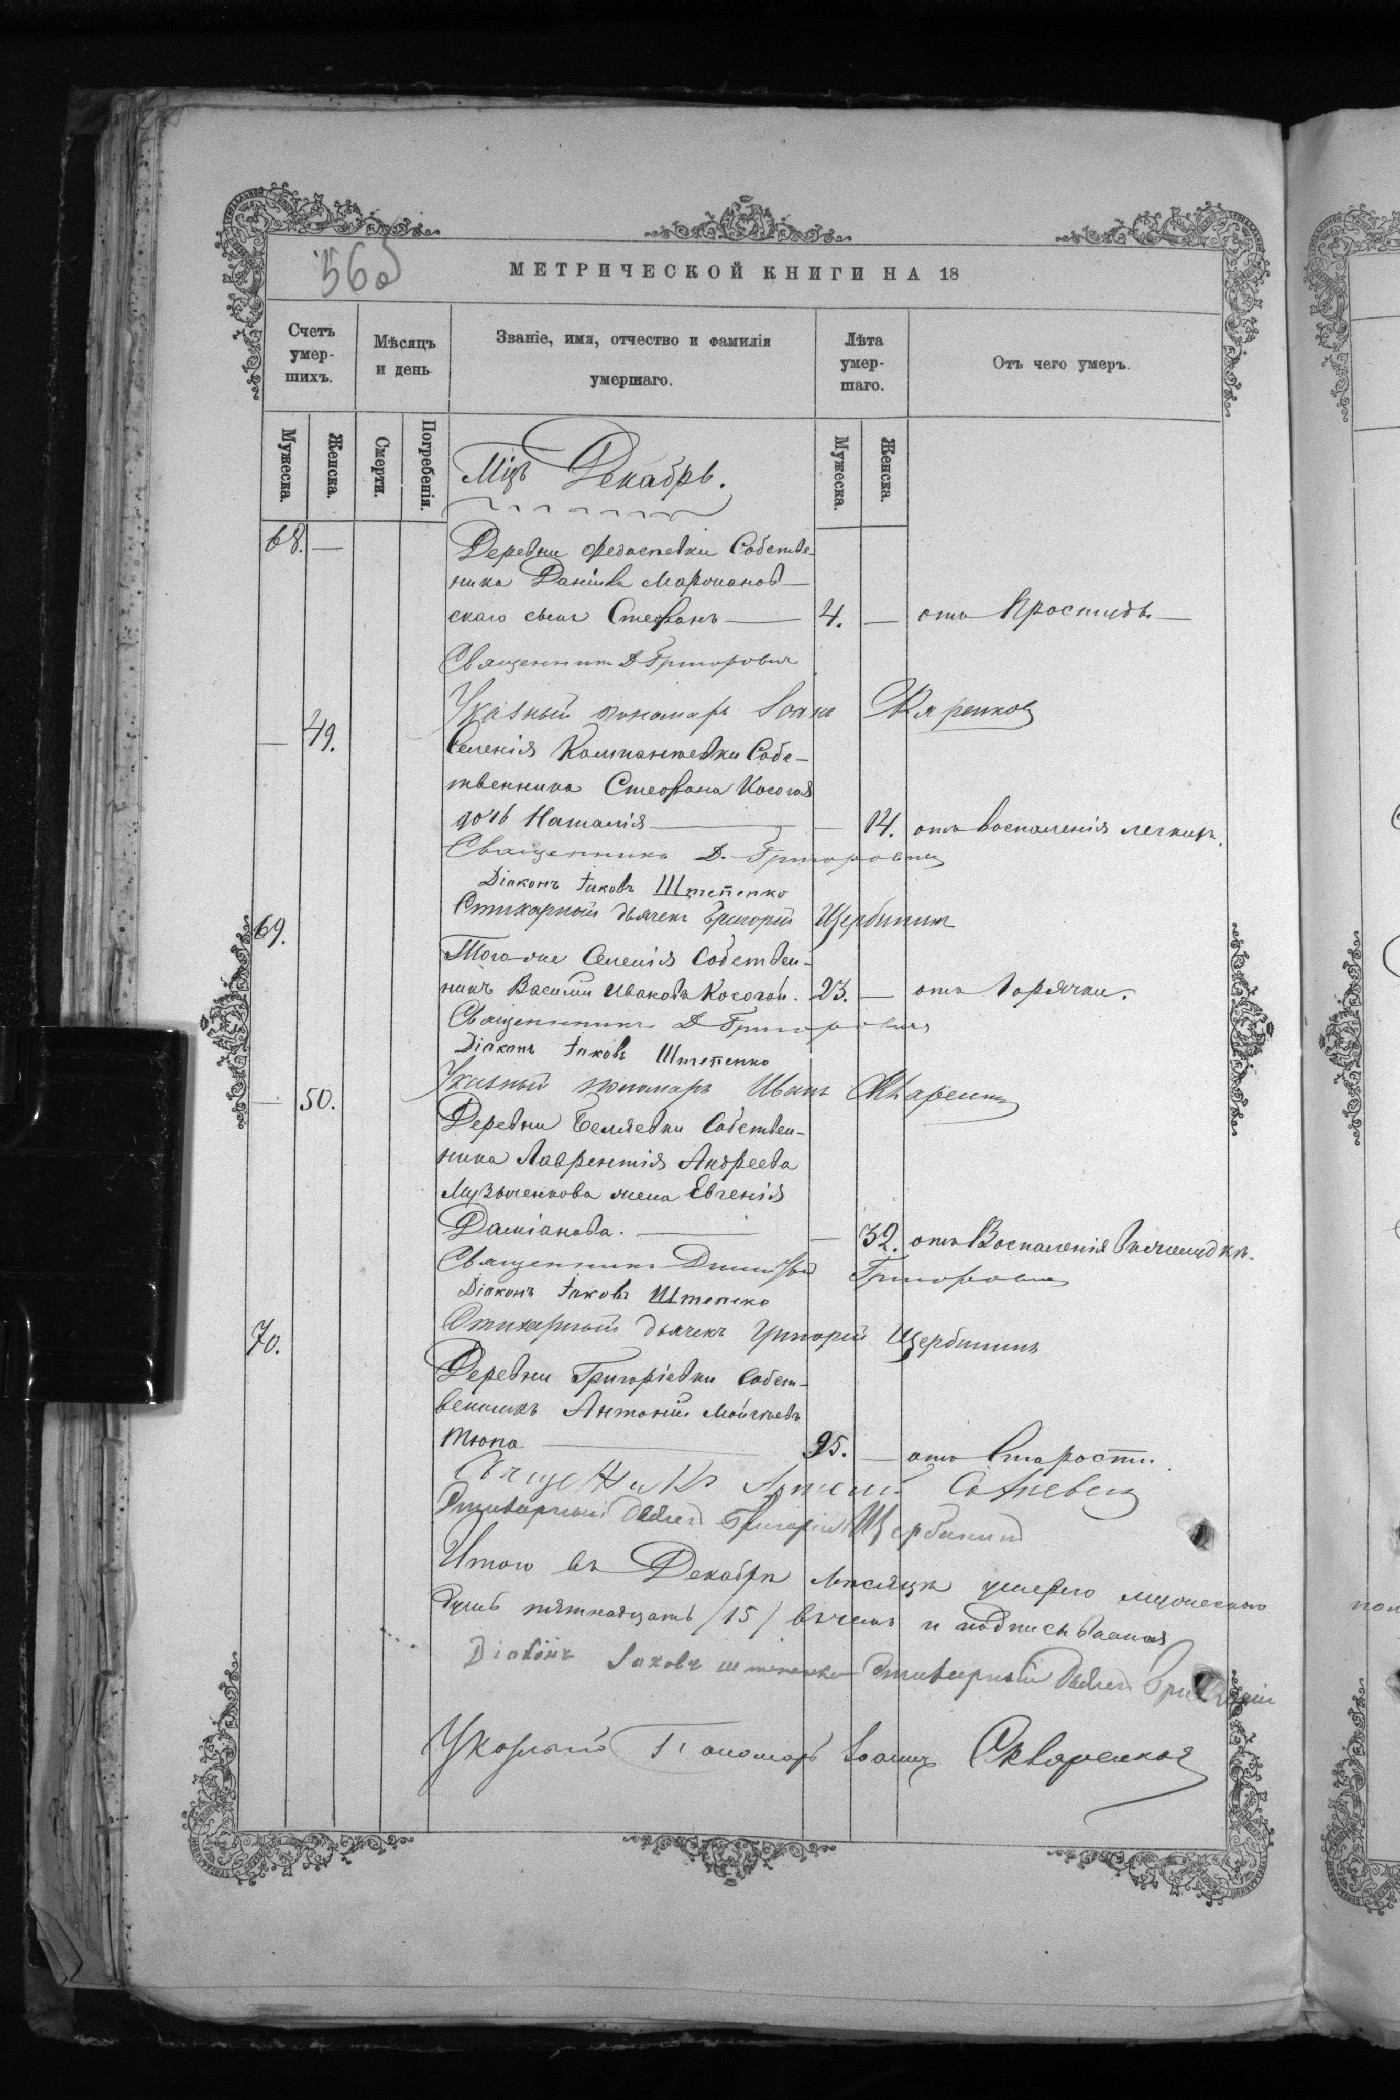 560
МЕТРИЧЕСКОЙ КНИГИ НА 18
Счетъ умер-шихъ.
Мѣсяцъ и день
Званіе, имя, отчество и фамилія умершаго.
Лѣта умер-шаго.
Отъ чего умеръ.
Мужеска.
Женска.
Смерти.
Погребенія.
Мужеска.
Женска.
Мцъ Декабрь.
68. —
Деревни Федосѣевки Собстве-
нника Даніила Мартианов-
скаго сынъ Стефанъ — 4. — отъ Простуды —
Священникъ Д Григоровичъ
Указный пономарь Іоаннъ
— 49.
Селенія Компанѣевки Собс-
твенника Стефана Косогоя
дочь Наталія — — 14. отъ воспаленія легкихъ.
Священникъ Д. Григоровичъ
Діаконъ Іаковъ Штепенко
Стихарный дьячекъ Григорій Щербининъ
69.
Того-же Селенія Собствен-
никъ Василій Ивановъ Косогой. 23. — отъ Горячки.
Священникъ Д Григоровичъ
Діаконъ Іаковъ Штепенко
Указный пономарь Иванъ
— 50.
Деревни Беляевки Собствен-
ника Лаврентія Андреева
Музыченкова жена Евгенія
Даміанова. — — 32. отъ Воспаленія
Священникъ Димитрій Григоровичъ
Діаконъ Іаковъ Штепенко
Стихарный дьячекъ Григорій Щербининъ
70.
Деревни Григоріевки Собст-
венникъ Антоній Моисѣевъ
Тюпа — 95. — отъ Старости.
Священникъ
Стихарный Дьячекъ Григорій Щербининъ
Итого въ Декабрѣ мѣсяцѣ умерло мужескаго
душъ пятнадцать /15/ въ чемъ и подписываемся
Діаконъ Іаковъ Штепенко Стихарный Дьячекъ Григорій
Указный Пономарь Іоаннъ Скваренков